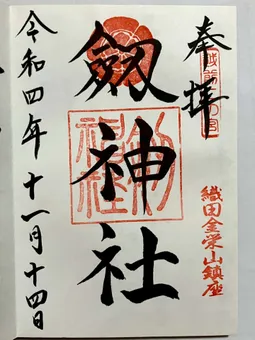 奉拝
越前二の宮
織田金栄山鎮座
劔神社
劔神社
令和四年十一月十四日